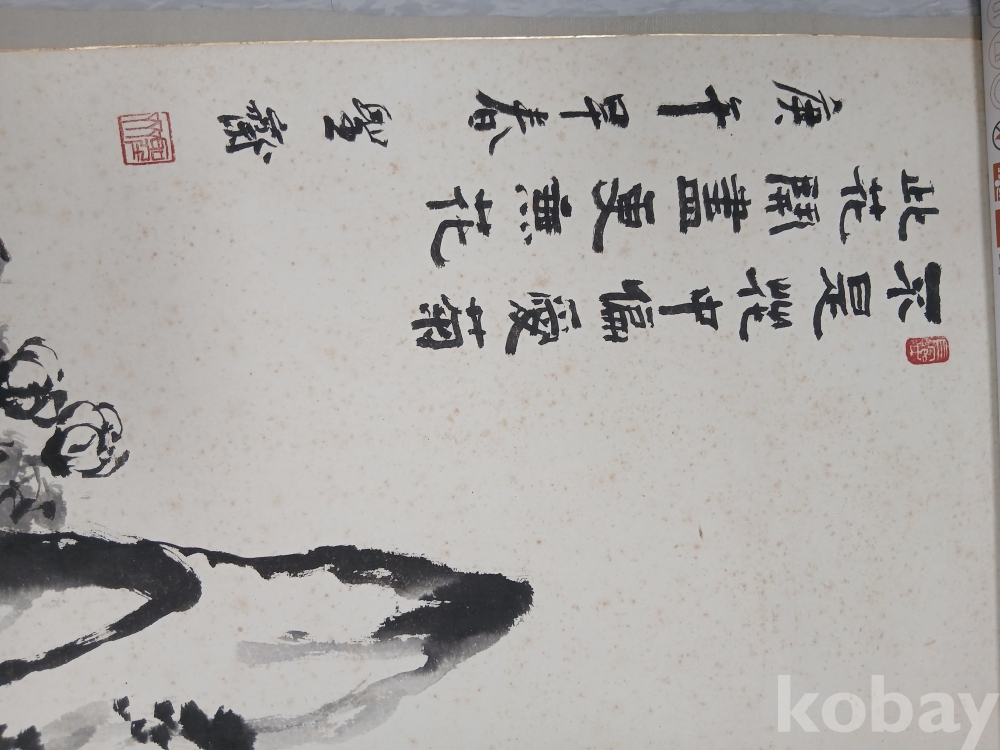 不是花中偏愛菊
此花開盡更無花
庚午早春 齋
kobay